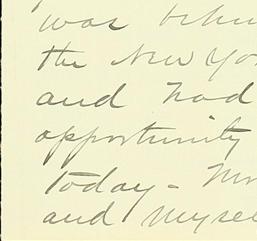 was behin
the New Yor
and had
opportunity
today - Mr
and myself